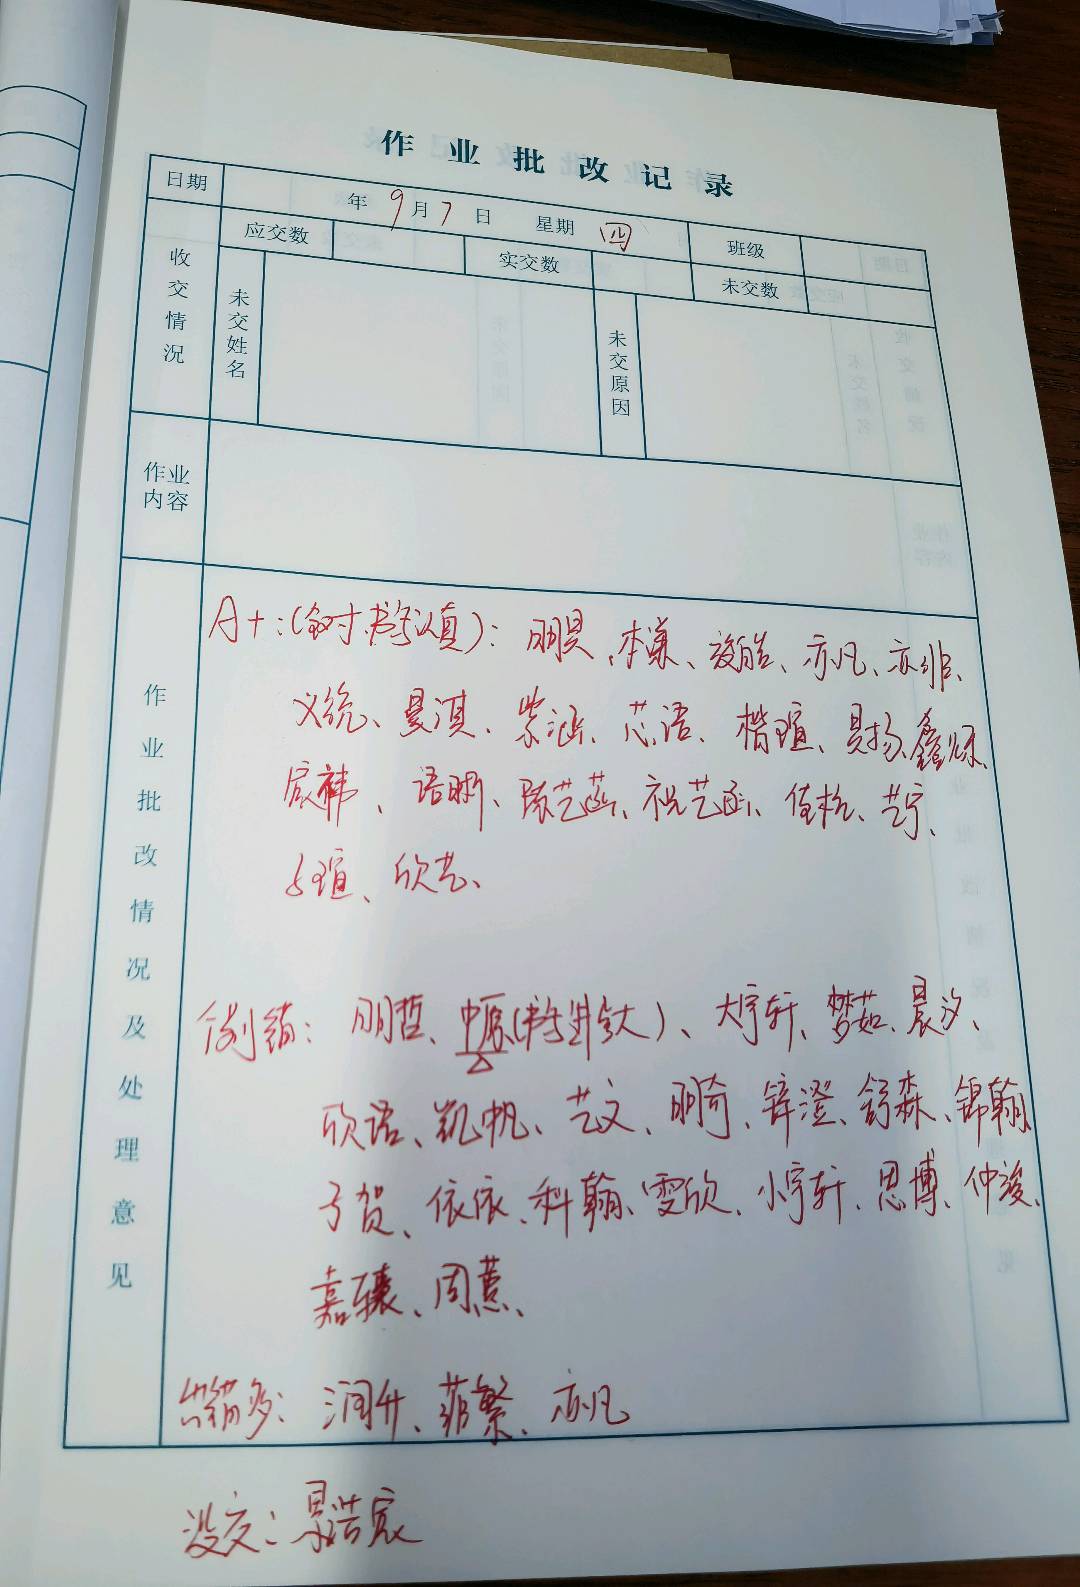 作业批改记录
日期 年 9月7日 星期 四 班级
收交情况 应交数 实交数 未交数
未交姓名 未交原因
作业内容
作业批改情况及处理意见
A+:(全对、书写认真): 明昊、本谦、 亦凡、亦非、
义统、曼淇、紫涵、芯语、楷瑄、昊扬、
宸祎、语晰、陈艺菡、祝艺函、佳杭、艺宁、
瑄、欣艺、
个别错: 明哲、中原(书写进步大)、大宇轩、梦茹、晨汐、
欣语、凯帆、艺文、明奇、梓澄、舒森、锦翰、
子贺、依依、科翰、雯欣、小宇轩、思博、仲浚、
嘉骧、周薏、
错多: 润升、菲繁、亦凡
没交: 景浩宸